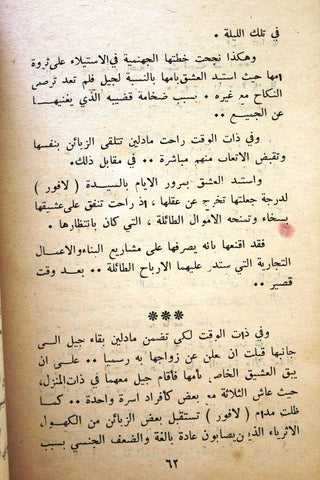 في تلك الليلة .
وهكذا نجحت خطتها الجهنمية في الاستيلاء على ثروة
امها حيث استبد العشق بامها بالنسبة لجيل فلم تعد ترضى
النكاح مع غيره . بسبب ضخامة قضيبه الذي يغنيهـا
عن الجميع ..
وفي ذات الوقت راحت مادلين تتلقى الزبائن بنفسها
وتقبض الاتعاب منهم مباشرة .. في مقابل ذلك.
واستبد العشق بمرور الايام بالسيـدة ( لافور )
لدرجة جعلتها تخرج عن عقلها ، اذ راحت تنفق على عشيقها
بسخاء وتمنحه الاموال الطائلة ، التي كان بانتظارها .
فقد اقنعها بانه يصرفها على مشاريع البناء والاعمـال
التجارية التي ستدر عليهما الارباح الطائلة .. بعـد وقت
قصير ..
***
وفي ذات الوقت لكي تضمن مادلين بقاء جيل الـى
جانبها قبلت ان يعلن عن زواجها به رسميا .. على ان
يبق العشيق الخاص بامها فأقام جيل معهما في ذات المنزل،
حيث عاش الثلاثة مع بعض كأفراد اسرة واحدة .. كمـا
ظلت مدام ( لافور ) تستقبل بعض الزبائن من الكهـول،
الاثرياء الذين يصابون عادة بالغة والضعف الجنسي بسبب
٦٢